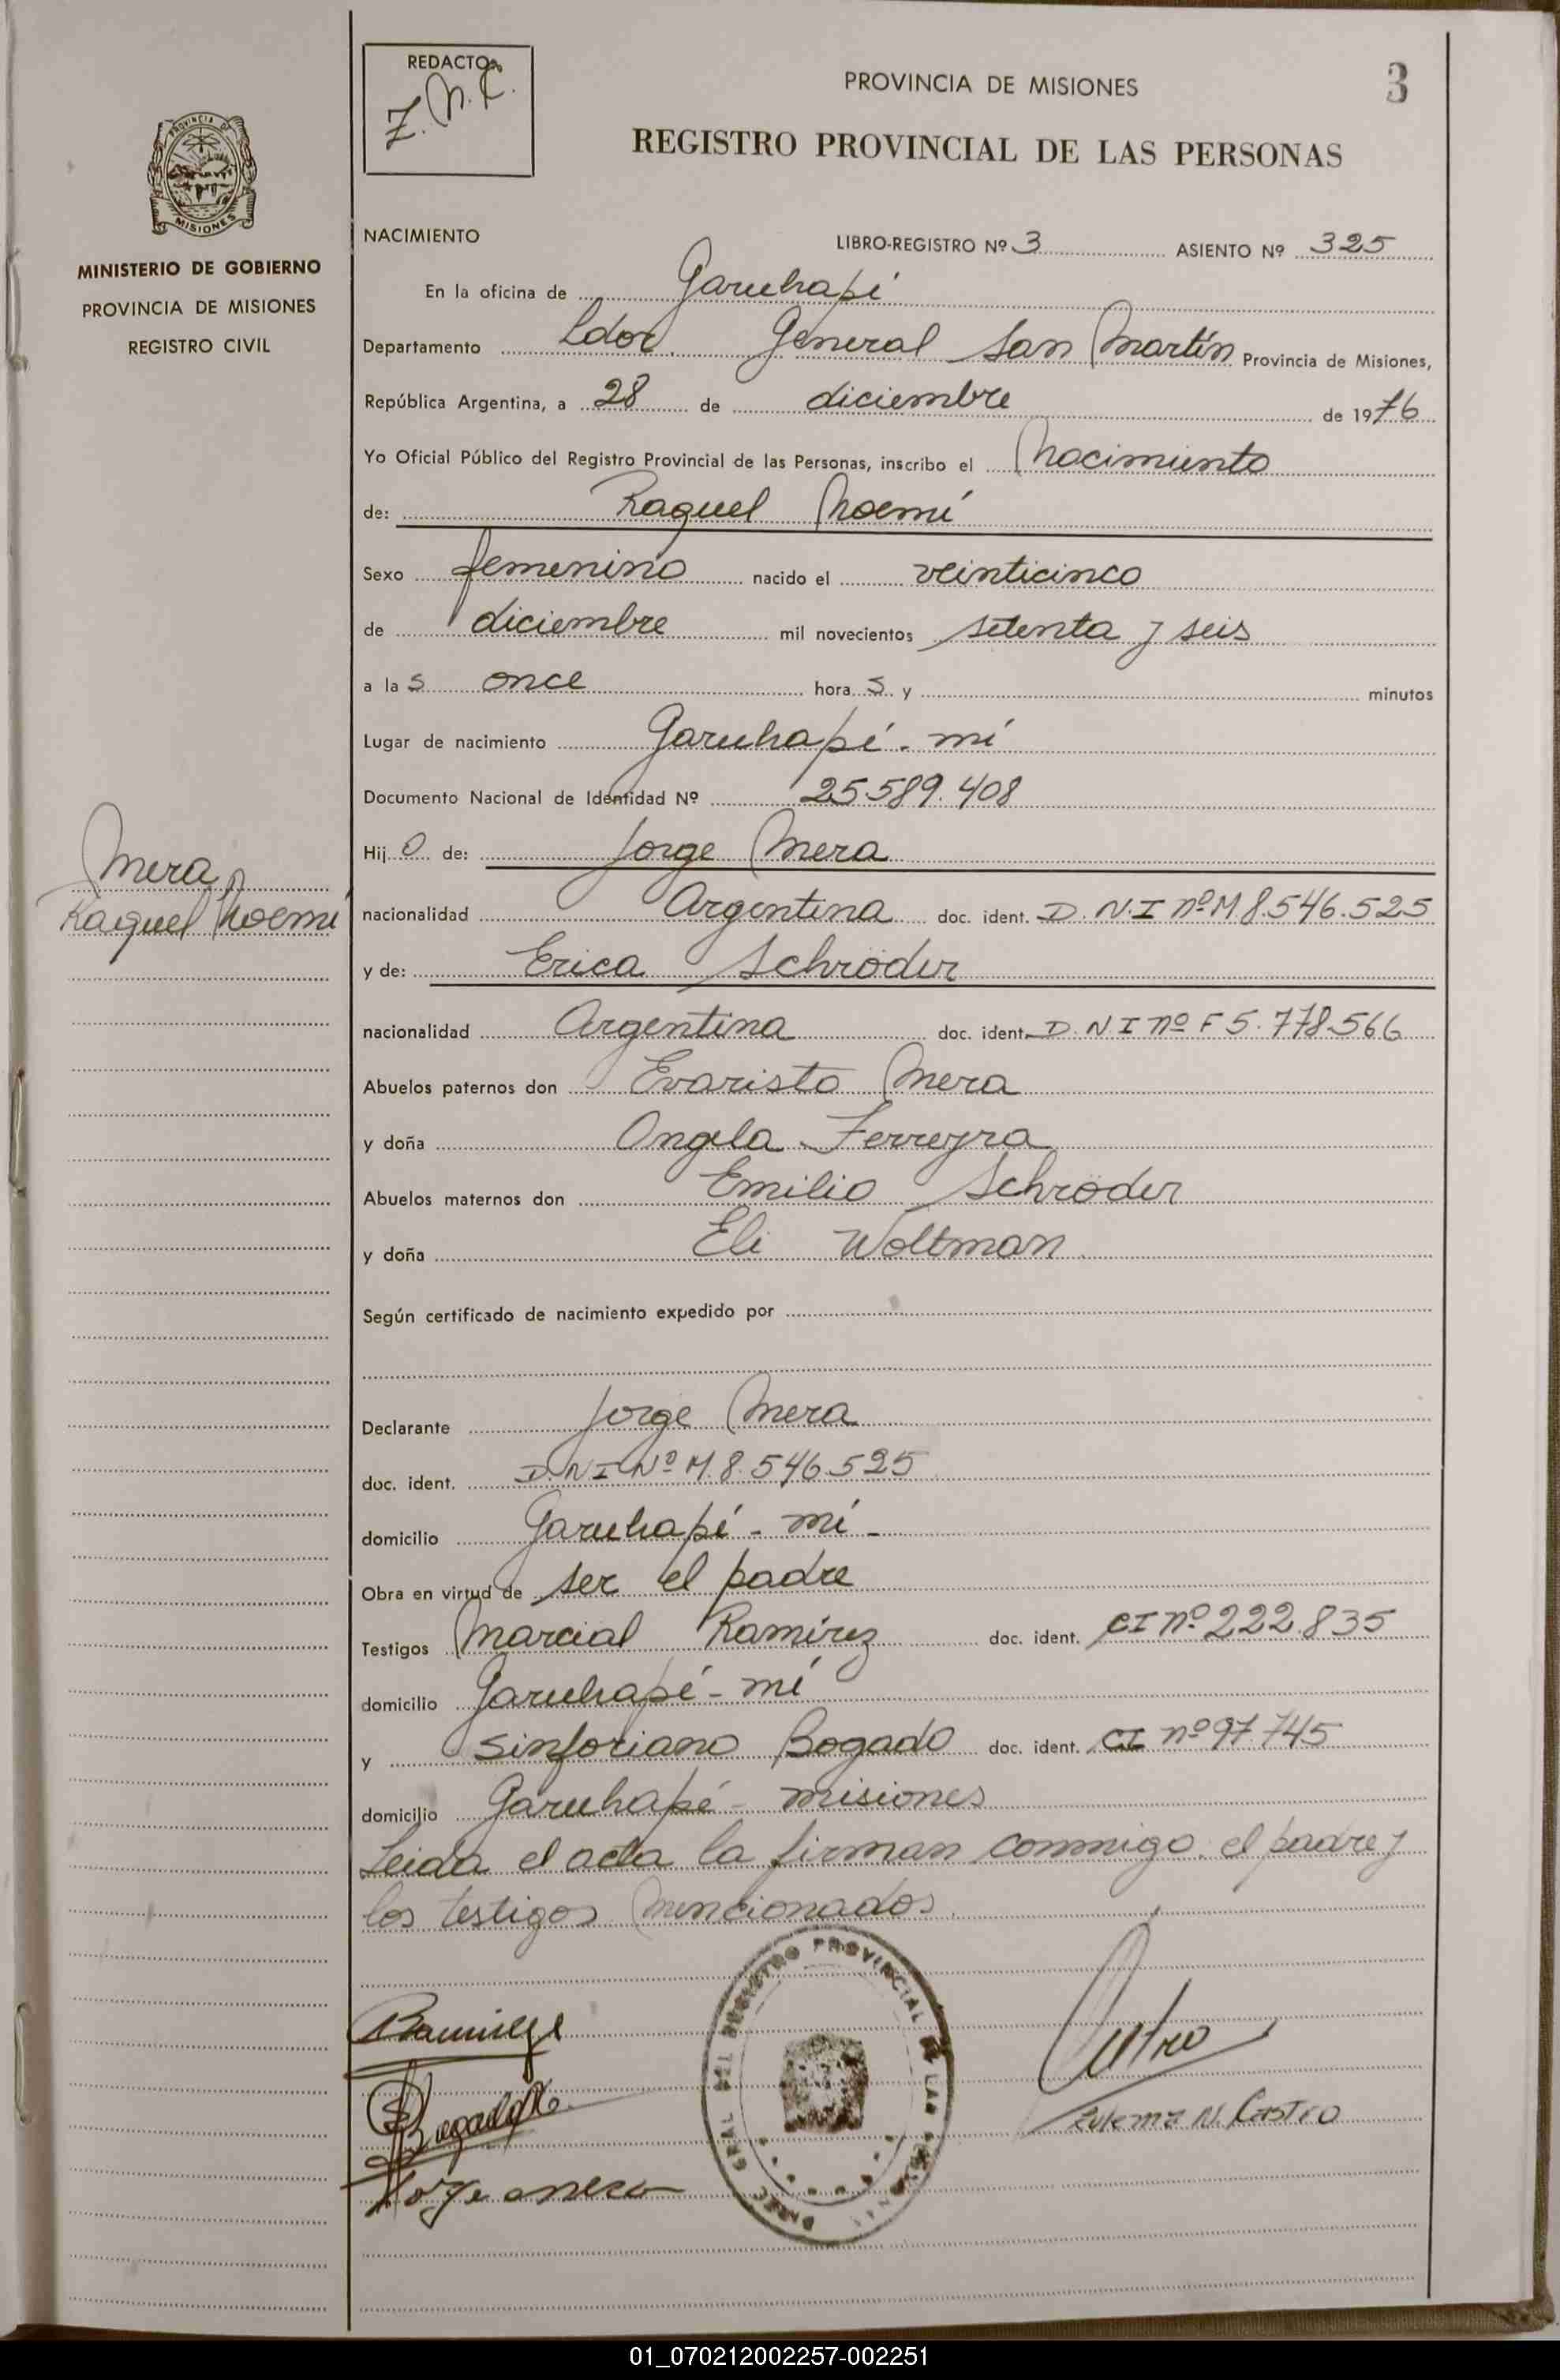 REDACTOR
Z. N. C.
PROVINCIA DE MISIONES
3
REGISTRO PROVINCIAL DE LAS PERSONAS
PROVINCIA DE
MISIONES
MINISTERIO DE GOBIERNO
PROVINCIA DE MISIONES
REGISTRO CIVIL
NACIMIENTO
LIBRO-REGISTRO Nº 3 ASIENTO Nº 325
En la oficina de Garuhapé
Departamento Ldor. General San Martín Provincia de Misiones,
República Argentina, a 28 de diciembre de 1976
Yo Oficial Público del Registro Provincial de las Personas, inscribo el Nacimiento
de: Raquel Noemí
Sexo femenino nacido el veinticinco
de diciembre mil novecientos setenta y seis
a las once horas y minutos
Lugar de nacimiento Garuhapé - mí
Documento Nacional de Identidad Nº 25.589.408
Hijo de: Jorge Mera
Mera,
Raquel Noemí
nacionalidad Argentina doc. ident. D.N.I nº M 8.546.525
y de: Erica Schröder
nacionalidad Argentina doc. ident. D.N I nº F 5.778.566
Abuelos paternos don Evaristo Mera
y doña Angela Ferreyra
Abuelos maternos don Emilio Schröder
y doña Eli Woltman
Según certificado de nacimiento expedido por
Declarante Jorge Mera
doc. ident. D.N I Nº M.8.546.525
domicilio Garuhapé - mí -
Obra en virtud de ser el padre
Testigos Marcial Ramírez doc. ident. CI nº 222.835
domicilio Garuhapé - mí
y Sinforiano Bogado doc. ident. CI nº 97.745
domicilio Garuhapé - misiones
Leida el acta la firman conmigo el padre y
los testigos mencionados
DIREC. GRAL. DEL REGISTRO PROVINCIAL DE LAS PERSONAS
Zulema N. Castro
Jorge mera
01_070212002257-002251